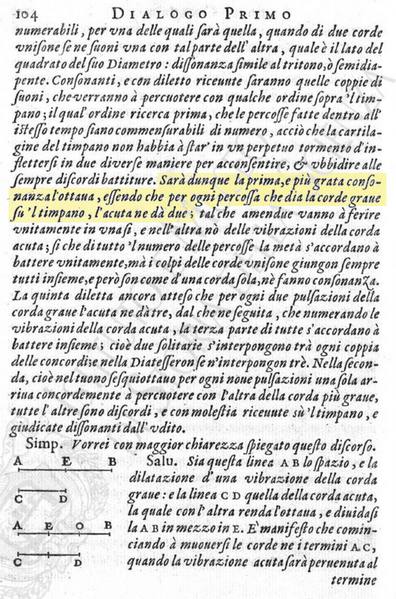 104 DIALOGO PRIMO
numerabili, per vna delle quali ſarà quella, quando di due corde
vniſone ſe ne ſuoni vna con tal parte dell'altra, quale è il lato del
quadrato del ſuo Diametro: diſſonanza ſimile al tritono, ò ſemidia-
pente. Conſonanti, e con diletto riceute ſaranno quelle coppie di
ſuoni, che verranno à percuotere con qualche ordine ſopra 'l tim-
pano; il qual ordine ricerca prima, che le percoſſe fatte dentro all'
iſteſſo tempo ſiano commenſurabili di numero, acciò che la cartila-
gine del timpano non habbia à ſtar' in vn perpetuo tormento d'in-
flettersi in due diuerſe maniere per acconſentire, & vbbidire alle
ſempre diſcordi battiture. Sarà dunque la prima, e più grata conſo-
nanza l'ottaua, eſſendo che per ogni percoſſa che dia la corde graue
ſu 'l timpano, l'acuta ne dà due; tal che amendue vanno à ferire
vnitamente in vna sì, e nell'altra nò delle vibrazioni della corda
acuta; sì che di tutto 'l numero delle percoſſe la metà s'accordano à
battere vnitamente, mà i colpi delle corde vniſone giungon ſempre
tutti inſieme, e però ſon come d'una corda ſola, nè fanno conſonanza.
La quinta diletta ancora atteſo che per ogni due pulſazioni della
corda graue l'acuta ne dà tre, dal che ne ſeguita, che numerando le
vibrazioni della corda acuta, la terza parte di tutte s'accordano à
battere inſieme; cioè due ſolitarie s'interpongono trà ogni coppia
delle concordi; e nella Diateſſeron ſe n'interpongon trè. Nella ſecon-
da, cioè nel tuono ſeſquiottauo per ogni noue pulſazioni vna ſola ar-
riua concordemente à percuotere con l'altra della corda più graue,
tutte l'altre ſono diſcordi, e con moleſtia riceute sù 'l timpano, e
giudicate diſſonanti dall'vdito.
Simp. Vorrei con maggior chiarezza ſpiegato queſto diſcorſo.
A E B Salu. Sia queſta linea A B lo ſpazio, e la
dilatazione d'una vibrazione della corda
C D graue: e la linea C D quella della corda acuta,
la quale con l'altra renda l'ottaua, e diuidaſi
A E O B la A B in mezzo in E. È manifeſto che comin-
ciando à muouerſi le corde ne i termini A, C,
C D quando la vibrazione acuta ſarà peruenuta al
termine